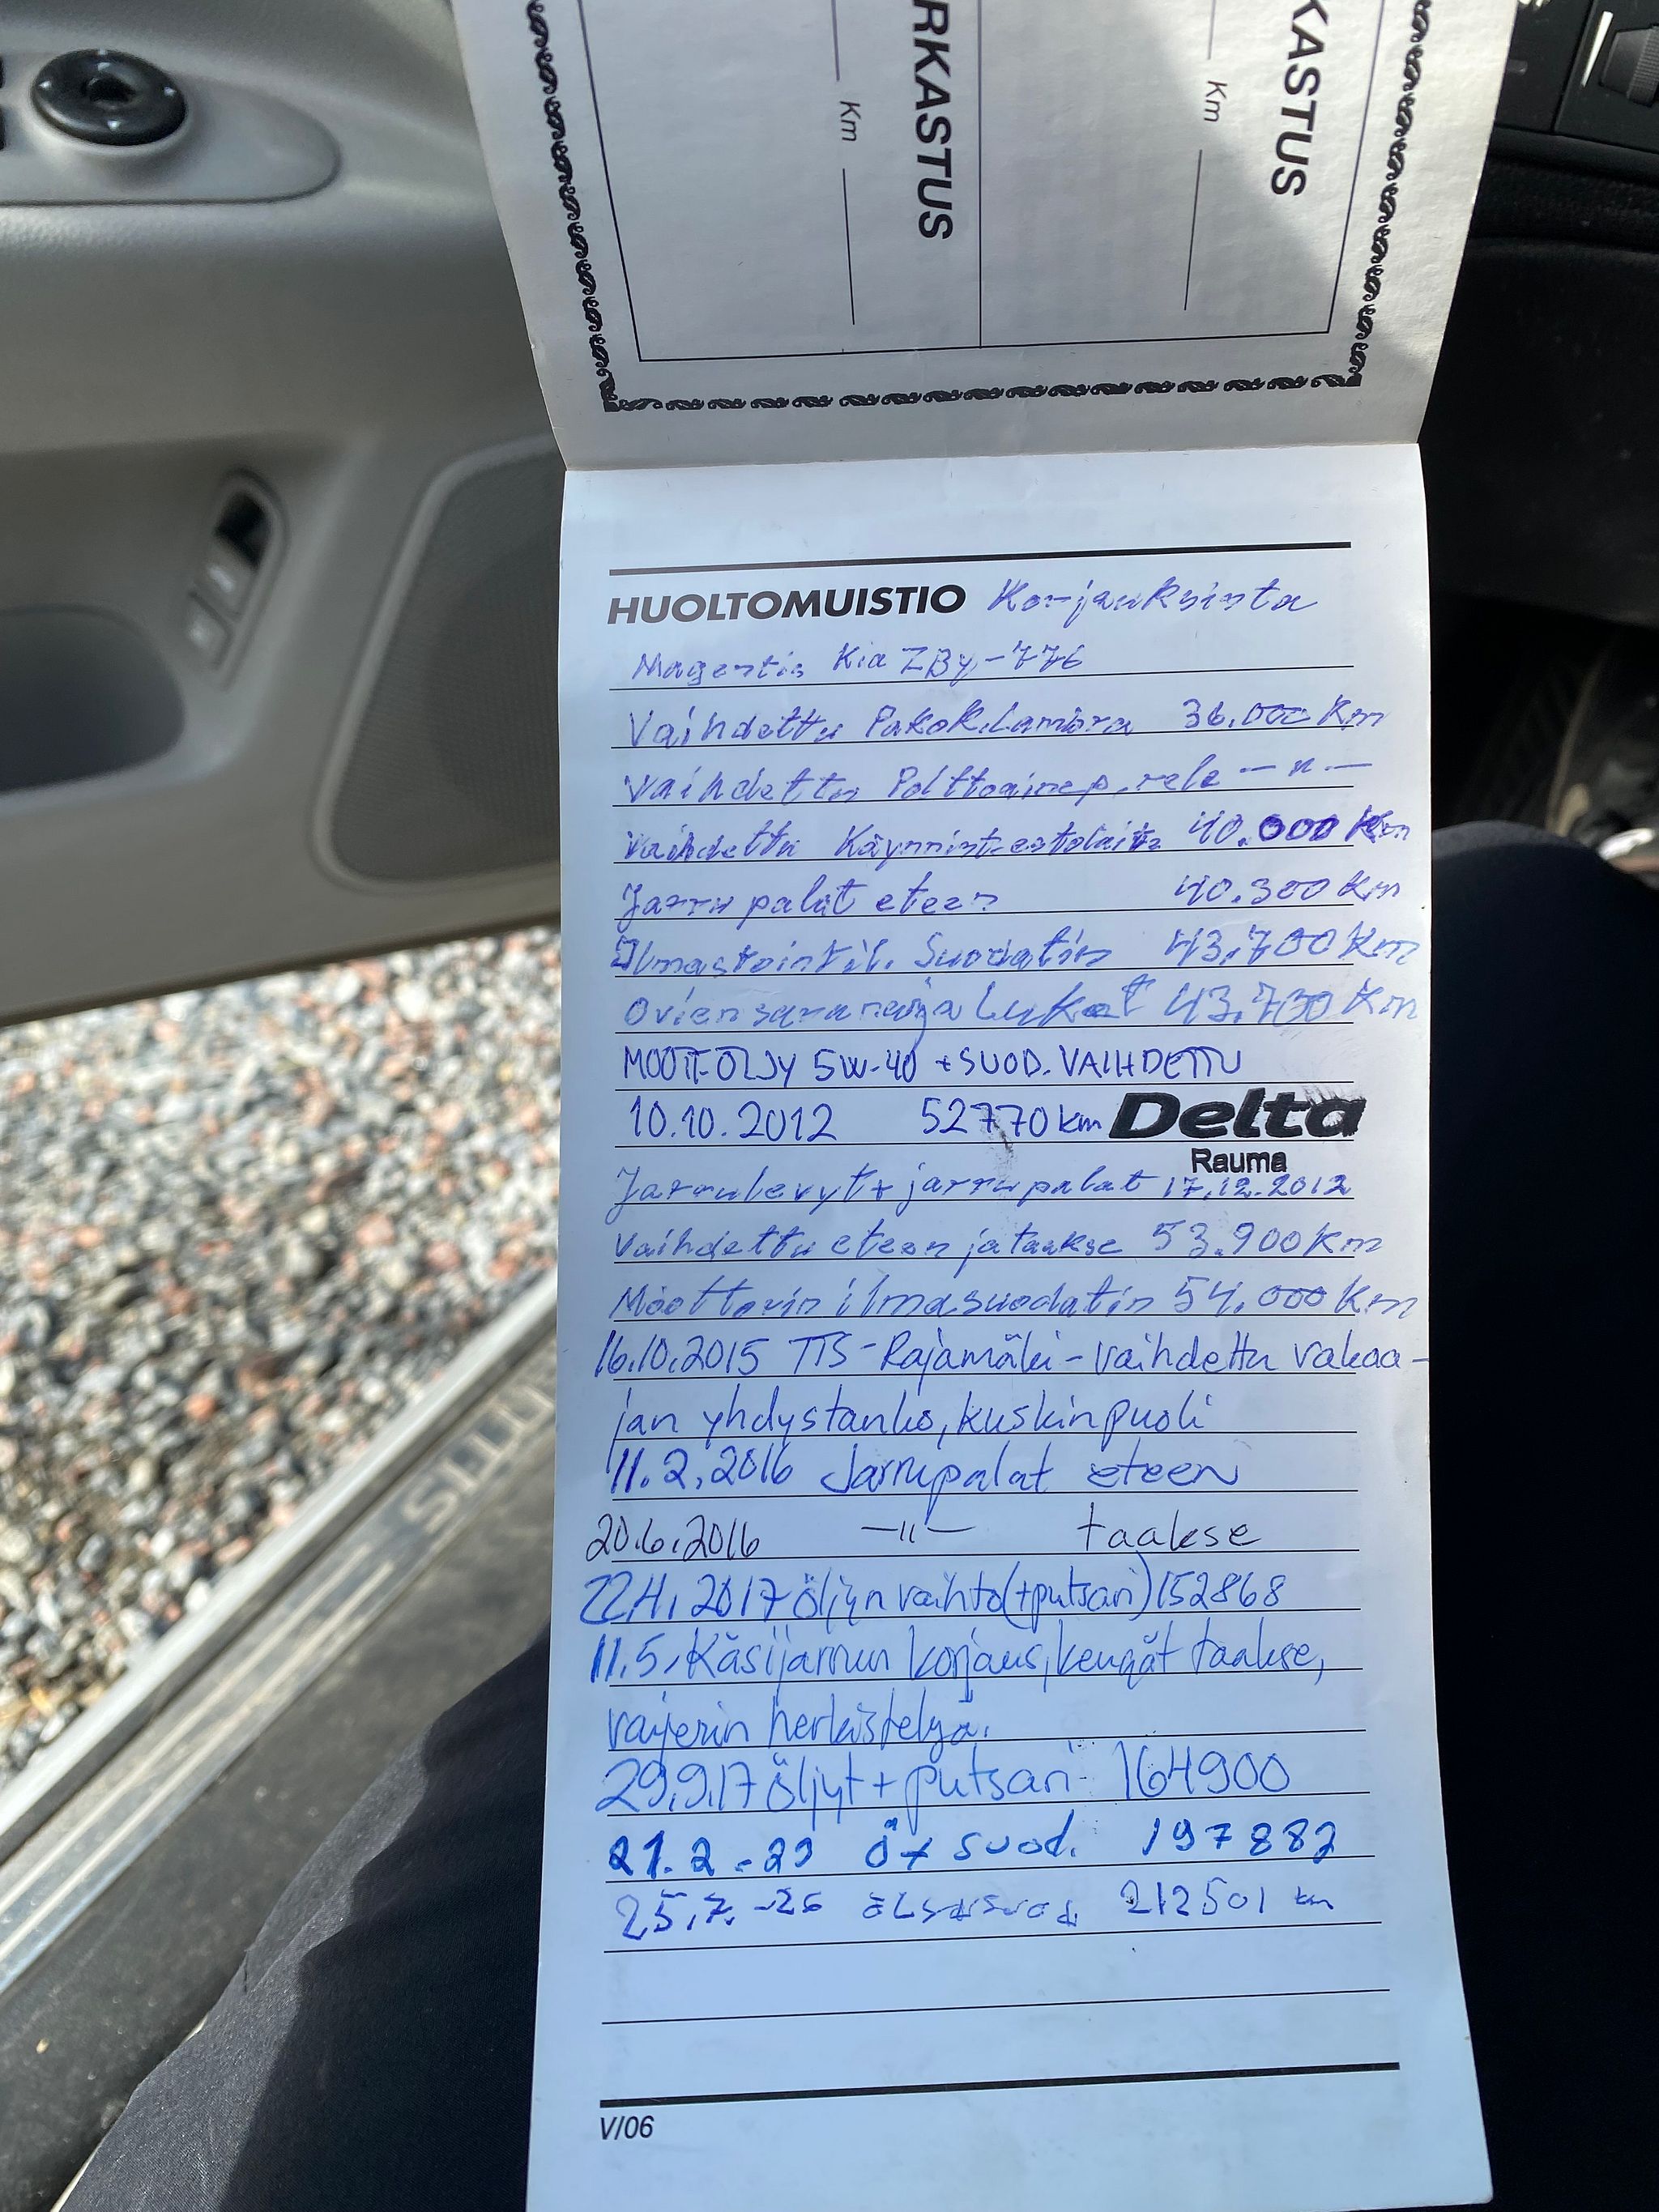 RKASTUS
Km
KASTUS
Km
HUOLTOMUISTIO Korjauksista
Magentis Kia ZBY-776
Vaihdettu Pakok.Lambra 36.000 Km
Vaihdettu Polttoainep.rele —"—
Vaihdettu Käynnist.estolaite 40.000 Km
Jarru palat eteen 40.300 Km
Ilmastointil. Suodatin 43.700 Km
Ovien saranat ja Lukot 43.700 Km
MOOTT-ÖLJY 5W-40 + SUOD. VAIHDETTU
10.10.2012 52770 km Delta
Rauma
Jarrulevyt + jarrupalat 17.12.2012
Vaihdettu eteen ja taakse 53.900 Km
Moottorin ilmasuodatin 54.000 Km
16.10.2015 TTS-Rajamäki - vaihdettu vakaa-
jan yhdystanko, kuskinpuoli
11.2.2016 Jarrupalat eteen
20.6.2016 —"— taakse
22.4.2017 öljyn vaihto (+putsari) 152868
11.5. Käsijarrun korjaus, kengät taakse,
vaijerin herkistelyä.
29.9.17 öljyt + putsari - 164900
21.2.-23 Ö+ suod. 197882
25.7.-26 212501 km
V/06